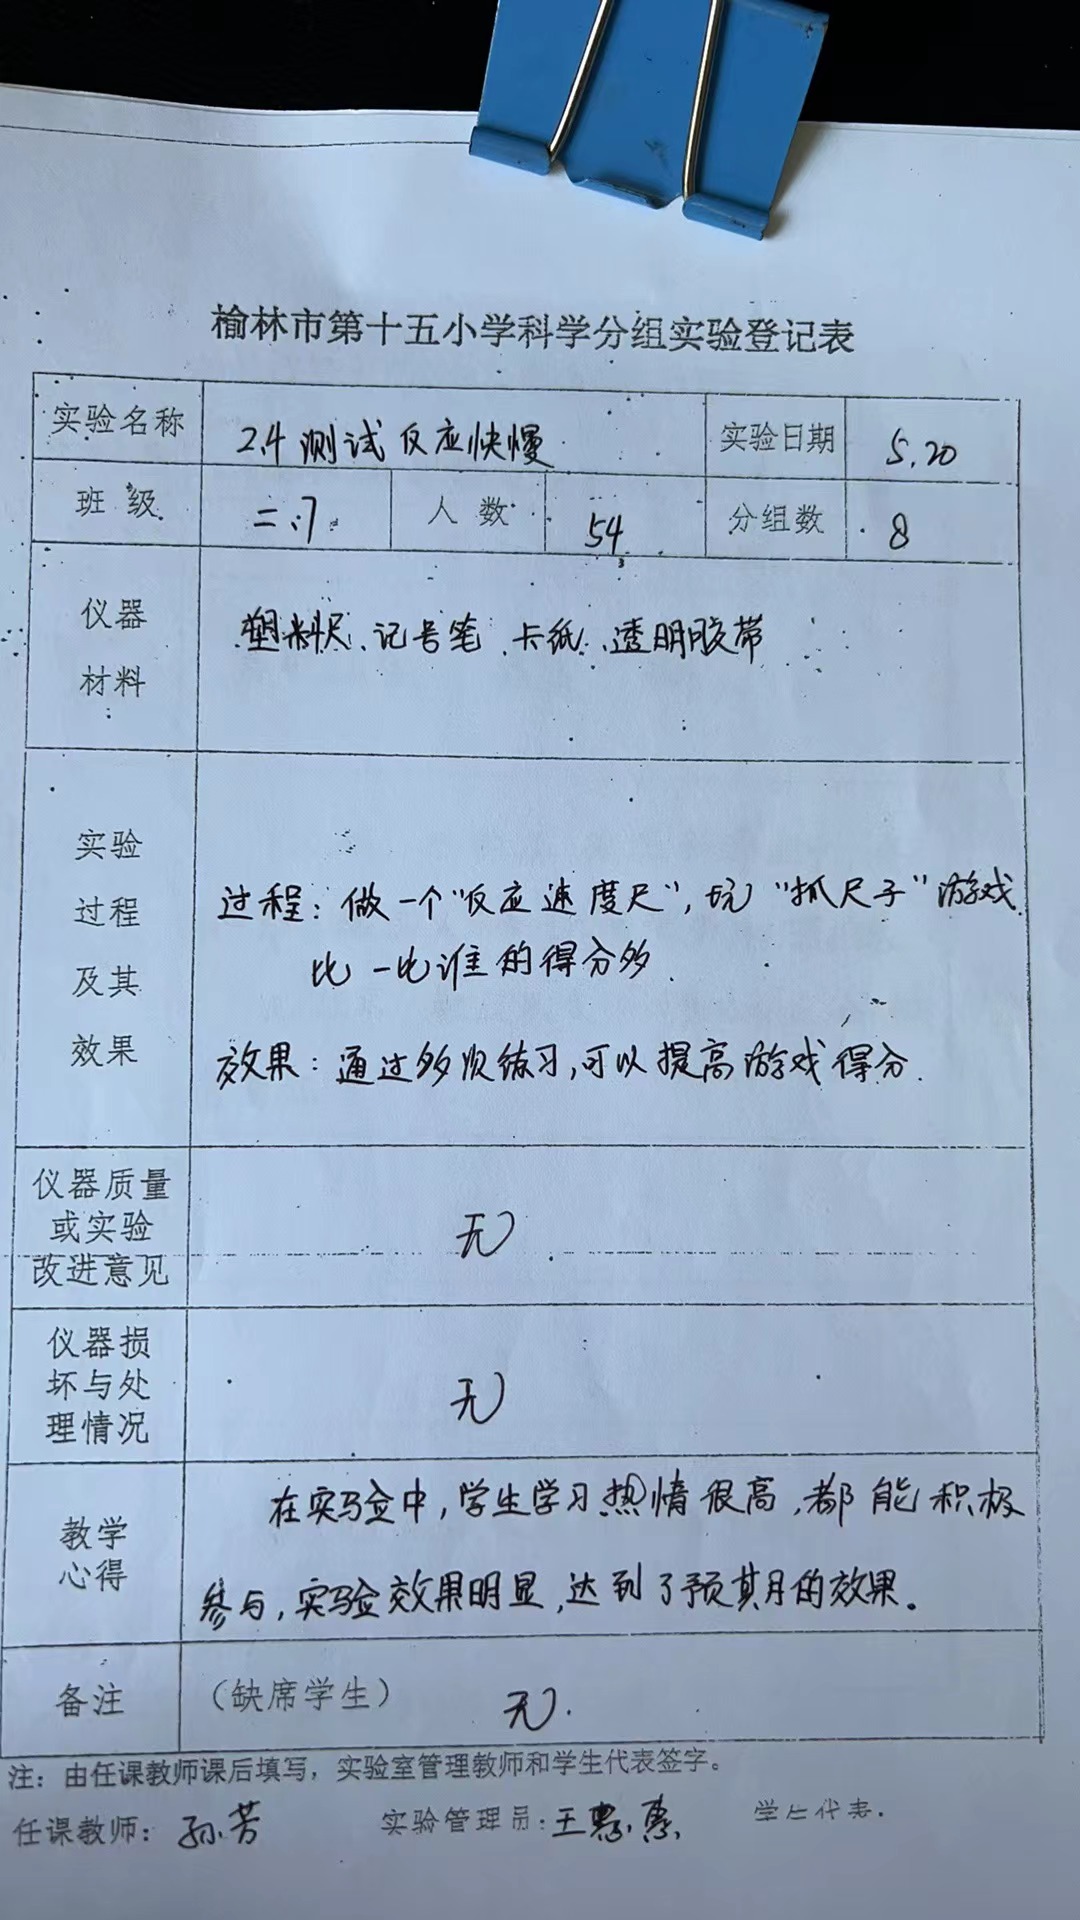 榆林市第十五小学科学分组实验登记表
实验名称 2.4 测试反应快慢 实验日期 5.20
班级 二.7 人数 54 分组数 8
仪器
材料
塑料尺、记号笔、卡纸、透明胶带
实验
过程
及其
效果
过程：做一个“反应速度尺”，玩“抓尺子”游戏
比一比谁的得分多.
效果：通过多次练习，可以提高游戏得分.
仪器质量
或实验
改进意见
无
仪器损
坏与处
理情况
无
教学
心得
在实验中，学生学习热情很高，都能积极
参与，实验效果明显，达到了预期的效果。
备注 （缺席学生） 无.
注：由任课教师课后填写，实验室管理教师和学生代表签字。
任课教师：孙芳 实验管理员：王惠惠 学生代表.